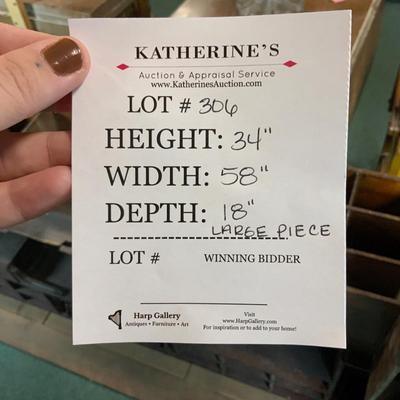 KATHERINE'S
Auction & Appraisal Service
www.KatherinesAuction.com
LOT # 306
HEIGHT: 34"
WIDTH: 58"
DEPTH: 18"
LARGE PIECE
LOT # WINNING BIDDER
Harp Gallery
Antiques • Furniture • Art
Visit
www.HarpGallery.com
For inspiration or to add to your home!